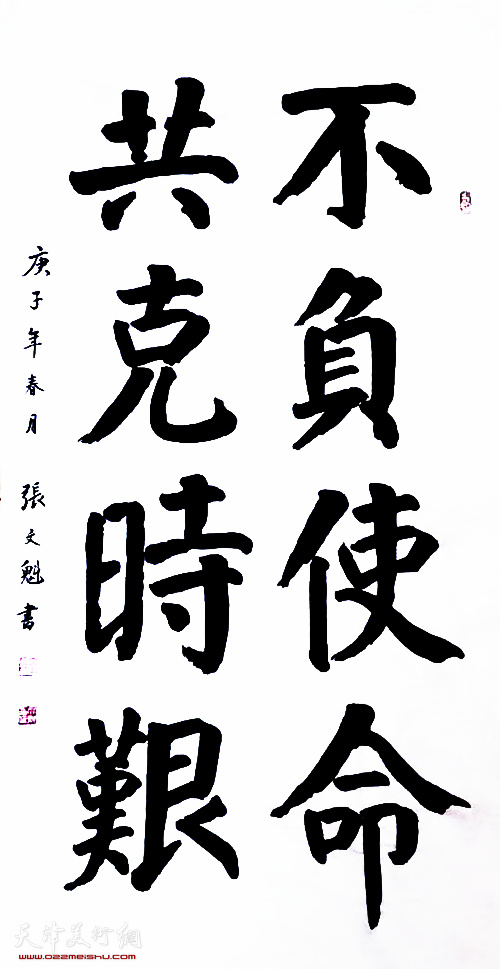 不負使命
共克時艱
庚子年春月 張文魁書
天津美术網
www.022meishu.com